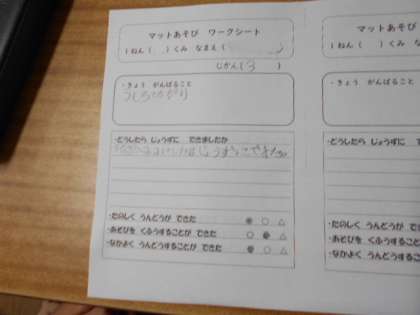 マットあそび ワークシート
1ねん( )くみ なまえ( )
じかん(3 )
・きょう がんばること
うしろまわり
・どうしたら じょうずに できましたか
・たのしく うんどうが できた ◉ ○ △
・あそびを くふうすることが できた ○ ◉ △
・なかよく うんどうすることが できた ◉ ○ △
マットあそび
1ねん( )くみ
・きょう がんばること
・どうしたら じょうずに でき
・たのしく うんどうが
・あそびを くふうするこ
・なかよく うんどうする